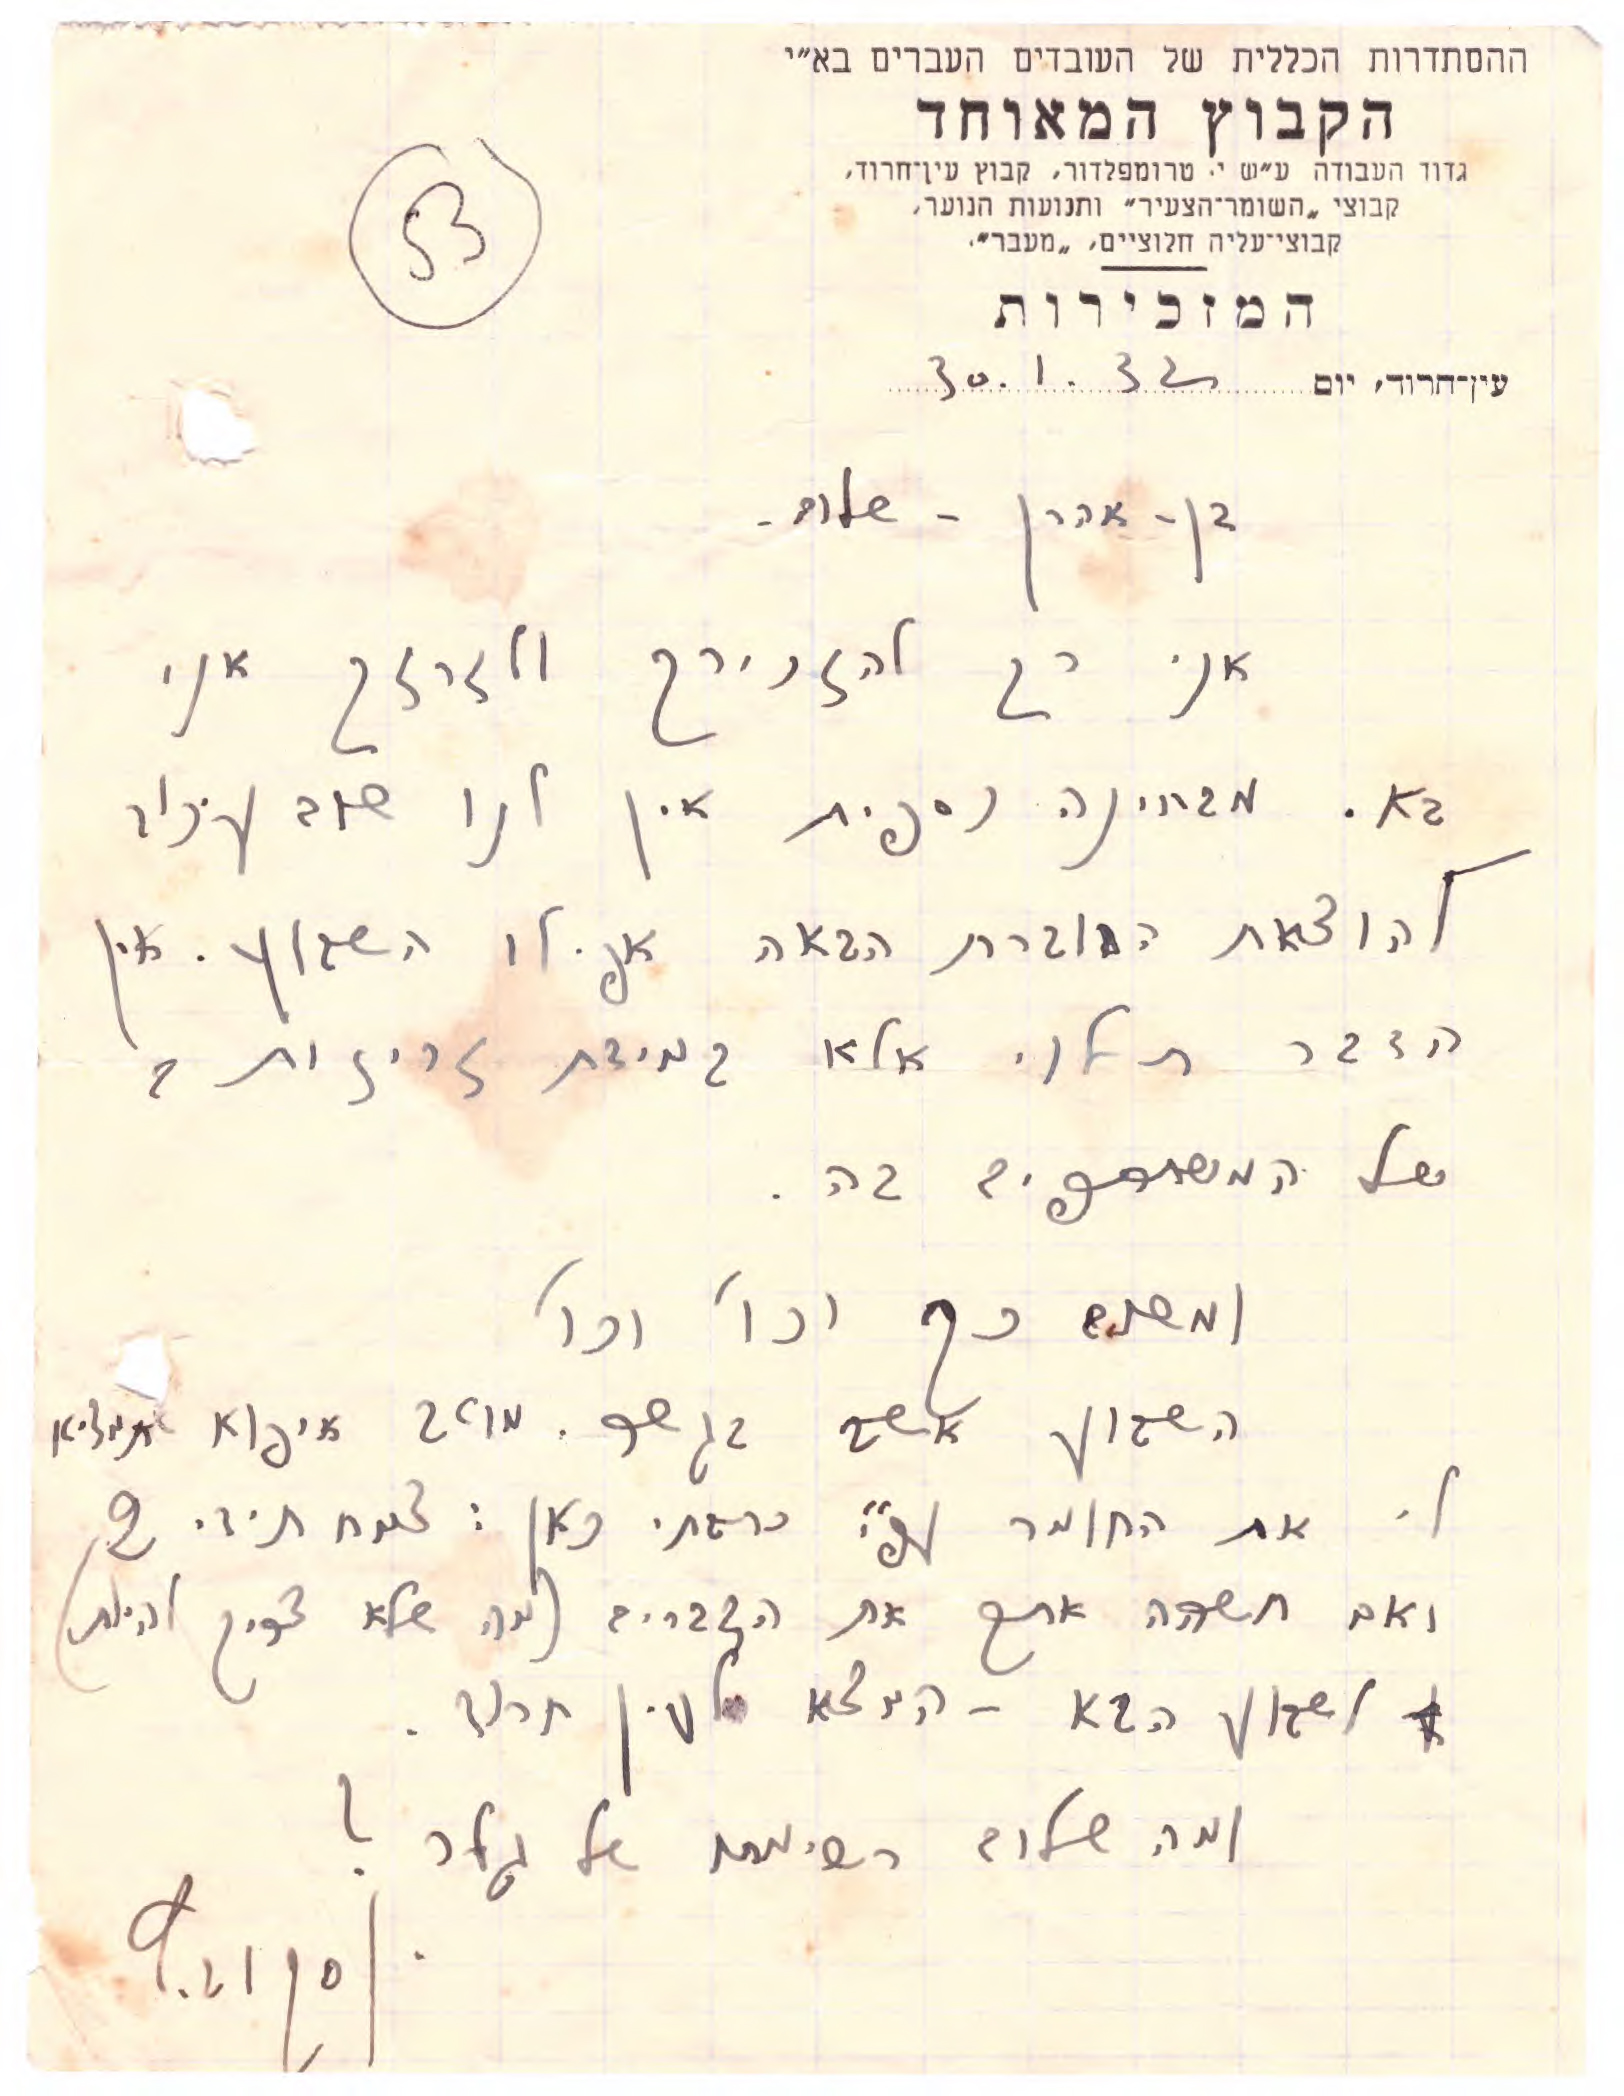 ההסתדרות הכללית של העובדים העברים בא״י
הקבוץ המאוחד
גדוד העבודה ע״ש י. טרומפלדור, קבוץ עין־חרוד,
קבוצי „השומר־הצעיר״ ותנועות הנוער,
קבוצי־עליה חלוציים, „מעבר״.
המזכירות
עין־חרוד, יום 30.1.32
53
בן-אהרן - שלום.
אני רק להזכירך ולזרזך אני
בא. מבחינה כספית אין לנו שום עיכוב
להוצאת החוברת הבאה אפילו השבוע. אין
הדבר תלוי אלא במידת זריזותם
של המשתתפים בה.
ומשום כך וכו' וכו'
השבוע אשב בגשר. מוטב איפוא שתמציא
לי את החומר עפ"י כתבתי כאן:
ואם תשהה אתך את הדברים (מה שלא צריך להיות)
לשבוע הבא - המצא לעין חרוד.
ומה שלום רשימתו של גלר?